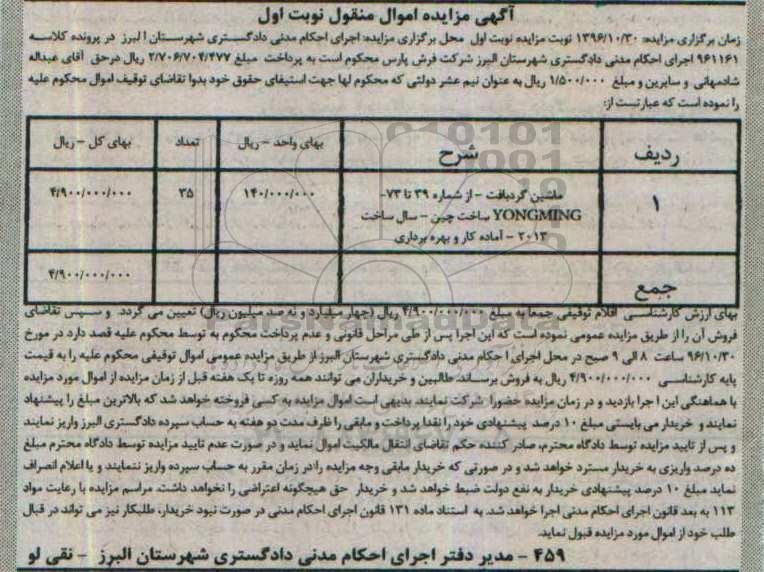 آگهی مزایده اموال منقول نوبت اول
زمان برگزاری مزایده: ۱۳۹۶/۱۰/۳۰ نوبت مزایده نوبت اول محل برگزاری مزایده: اجرای احکام مدنی دادگستری شهرستان البرز در پرونده کلاسه
۹۶۱۱۶۱ اجرای احکام مدنی دادگستری شهرستان البرز شرکت فرش پارس محکوم است به پرداخت مبلغ ۲/۷۰۶/۷۰۴/۴۷۷ ریال درحق آقای عبداله
شادمهانی و سایرین و مبلغ ۱/۵۰۰/۰۰۰ ریال به عنوان نیم عشر دولتی که محکوم لها جهت استیفای حقوق خود بدوا تقاضای توقیف اموال محکوم علیه
را نموده است که عبارتست از:
ردیف شرح بهای واحد - ریال تعداد بهای کل - ریال
۱ ماشین گردبافت - از شماره ۳۹ تا ۷۳- ۱۴۰/۰۰۰/۰۰۰ ۳۵ ۴/۹۰۰/۰۰۰/۰۰۰
YONGMING ساخت چین - سال ساخت
۲۰۱۳ - آماده کار و بهره برداری
جمع ۴/۹۰۰/۰۰۰/۰۰۰
بهای ارزش کارشناسی اقلام توقیفی جمعا به مبلغ ۴/۹۰۰/۰۰۰/۰۰۰ ریال (چهار میلیارد و نه صد میلیون ریال) تعیین می گردد. و سپس تقاضای
فروش آن را از طریق مزایده عمومی نموده است که این اجرا پس از طی مراحل قانونی و عدم پرداخت محکوم به توسط محکوم علیه قصد دارد در مورخ
۹۶/۱۰/۳۰ ساعت ۸ الی ۹ صبح در محل اجرای احکام مدنی دادگستری شهرستان البرز از طریق مزایده عمومی اموال توقیفی محکوم علیه را به قیمت
پایه کارشناسی ۴/۹۰۰/۰۰۰/۰۰۰ ریال به فروش برساند. طالبین و خریداران می توانند همه روزه تا یک هفته قبل از زمان مزایده از اموال مورد مزایده
با هماهنگی این اجرا بازدید و در زمان مزایده حضورا شرکت نمایند. بدیهی است اموال مزایده به کسی فروخته خواهد شد که بالاترین مبلغ را پیشنهاد
نمایند و خریدار می بایستی مبلغ ۱۰ درصد پیشنهادی خود را نقدا پرداخت و مابقی را ظرف مدت دو هفته به حساب سپرده دادگستری البرز واریز نمایند
و پس از تایید مزایده توسط دادگاه محترم، صادر کننده حکم تقاضای انتقال مالکیت اموال نماید و در صورت عدم تایید مزایده توسط دادگاه محترم مبلغ
ده درصد واریزی به خریدار مسترد خواهد شد و در صورتی که خریدار مابقی وجه مزایده را در زمان مقرر به حساب سپرده واریز ننمایند و یا اعلام انصراف
نماید مبلغ ۱۰ درصد پیشنهادی خریدار به نفع دولت ضبط خواهد شد و خریدار حق هیچگونه اعتراضی را نخواهد داشت. مراسم مزایده با رعایت مواد
۱۱۳ به بعد قانون اجرای احکام مدنی اجرا خواهد شد. به استناد ماده ۱۳۱ قانون اجرای احکام مدنی در صورت نبود خریدار، طلبکار نیز می تواند در قبال
طلب خود از اموال مورد مزایده قبول نماید.
۴۵۹ - مدیر دفتر اجرای احکام مدنی دادگستری شهرستان البرز - نقی لو
ParsNamadData